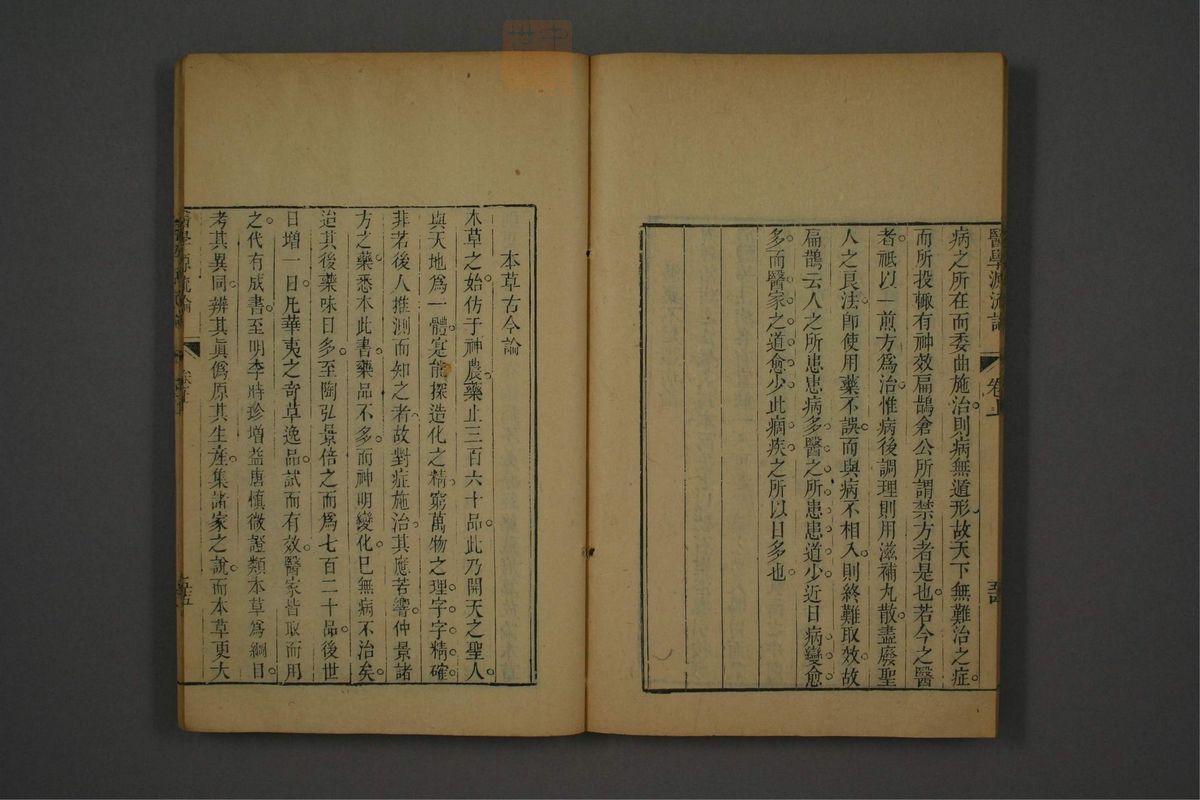 醫學源流論
卷上
病之所在而委曲施治則病無遁形故天下無難治之症
而所投輒有神效扁鵲倉公所謂禁方者是也若今之醫
者祇以一煎方爲治惟病後調理則用滋補丸散盡廢聖
人之良法卽使用藥不誤而與病不相入則終難取效故
扁鵲云人之所患患病多醫之所患患道少近日病變愈
多而醫家之道愈少此痼疾之所以日多也
本草古今論
本草之始仿于神農藥止三百六十品此乃開天之聖人
與天地爲一體寔能探造化之精窮萬物之理字字精確
非若後人推測而知之者故對症施治其應若響仲景諸
方之藥悉本此書藥品不多而神明變化已無病不治矣
迨其後藥味日多至陶弘景倍之而爲七百二十品後世
日增一日凡華夷之奇草逸品試而有效醫家皆取而用
之代有成書至明李時珍增益唐慎微證類本草爲綱目
考其異同辨其眞僞原其生產集諸家之說而本草更大
醫學源流論